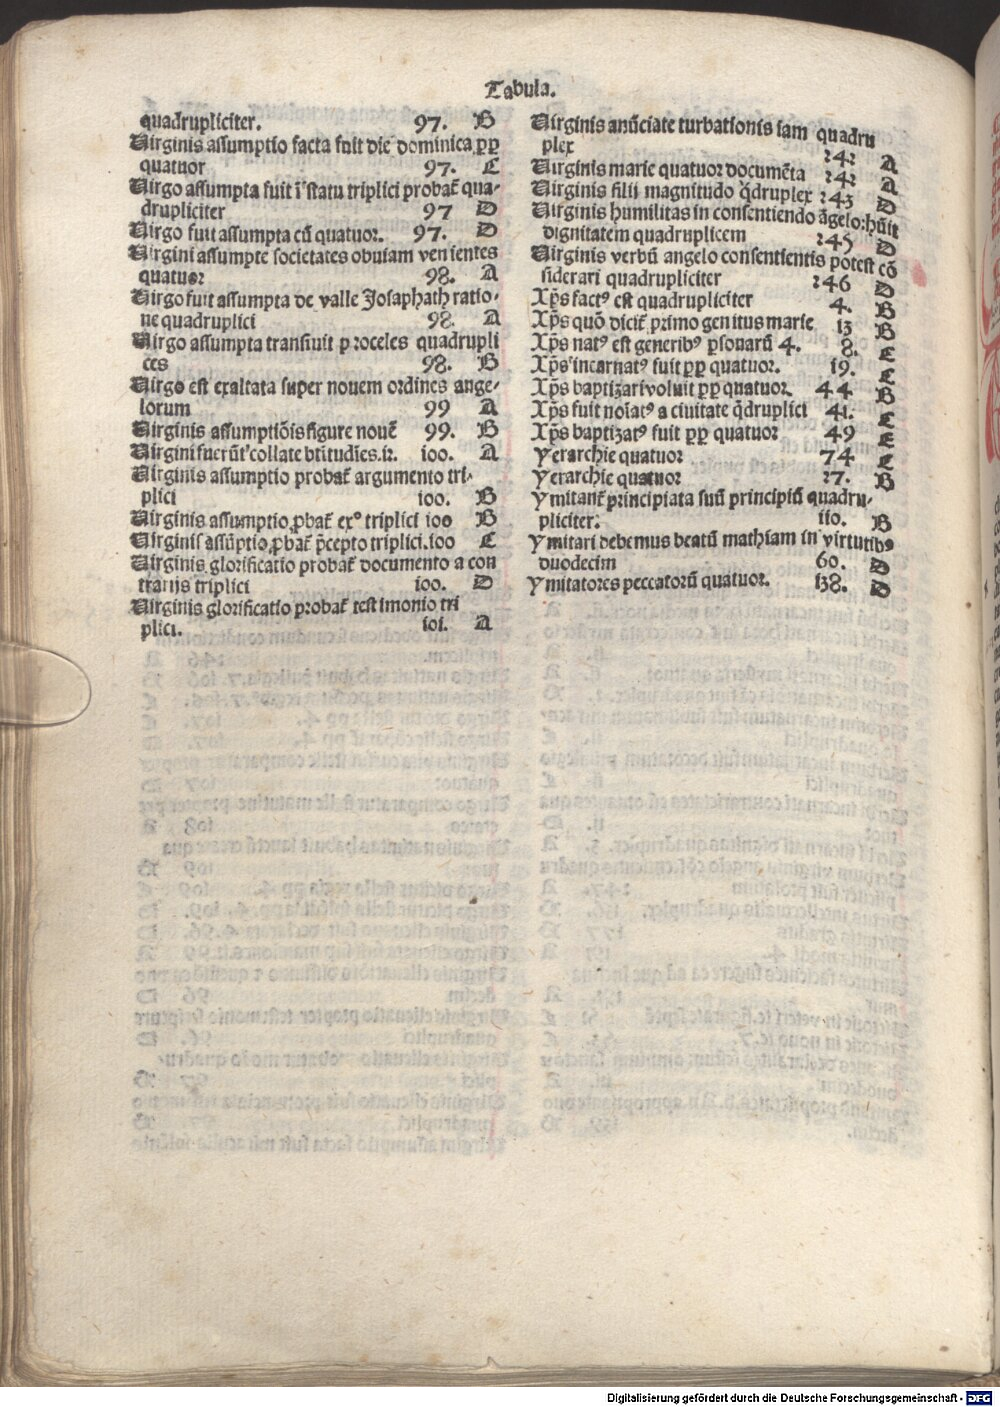 Tabula.
quadrupliciter. 97. B
Virginis assumptio facta fuit die dominica ꝓꝑ
quatuor 97. C
Virgo assumpta fuit ī statu triplici probat̄ qua-
drupliciter 97 D
Virgo fuit assumpta cū quatuor. 97. D
Virgini assumpte societates obuiam venientes
quatuor 98. A
Virgo fuit assumpta de valle Josaphath ratio-
ne quadruplici 98. A
Virgo assumpta transiuit ꝑ roceles quadrupli
ces 98. B
Virgo est exaltata super nouem ordines ange-
lorum 99 A
Virginis assumptiōis figure nouē 99. B
Virgini fuerūt collate btitudīes .ix. 100. A
Virginis assumptio probat̄ argumento tri-
plici 100. B
Virginis assumptio ꝓbat̄ exº triplici 100 B
Virginis assūptio ꝓbat̄ p̄cepto triplici. 100 C
Virginis glorificatio probat̄ documento a con
trariis triplici 100. D
Virginis glorificatio probat̄ testimonio tri
plici. 101. A
Virginis anūciate turbationis iam quadru
plex 242 A
Virginis marie quatuor documēta 242 A
Virginis filii magnitudo q̄druplex 243 D
Virginis humilitas in consentiendo āgelo: hūit
dignitatem quadruplicem 245 D
Virginis verbū angelo consentientis potest cō
siderari quadrupliciter 246 D
Xp̄s factꝰ est quadrupliciter 4. B
Xp̄s quō dicit̄ primo genitus marie 13 B
Xp̄s natꝰ est generibꝰ ꝑsonarū 4. 8. C
Xp̄s incarnatꝰ fuit ꝓꝑ quatuor. 19. C
Xp̄s baptizari voluit ꝓꝑ quatuor. 44 B
Xp̄s fuit noīatꝰ a ciuitate q̄druplici 41. C
Xp̄s baptizatꝰ fuit ꝓꝑ quatuor 49 C
Yerarchie quatuor 74 C
Yerarchie quatuor 27. B
Ymitant̄ principiata suū principiū quadru-
pliciter. 110. B
Ymitari debemus beatū mathiam in virtutibꝰ
duodecim 60. D
Ymitatores peccatorū quatuor. 138. D
Digitalisierung gefördert durch die Deutsche Forschungsgemeinschaft - DFG